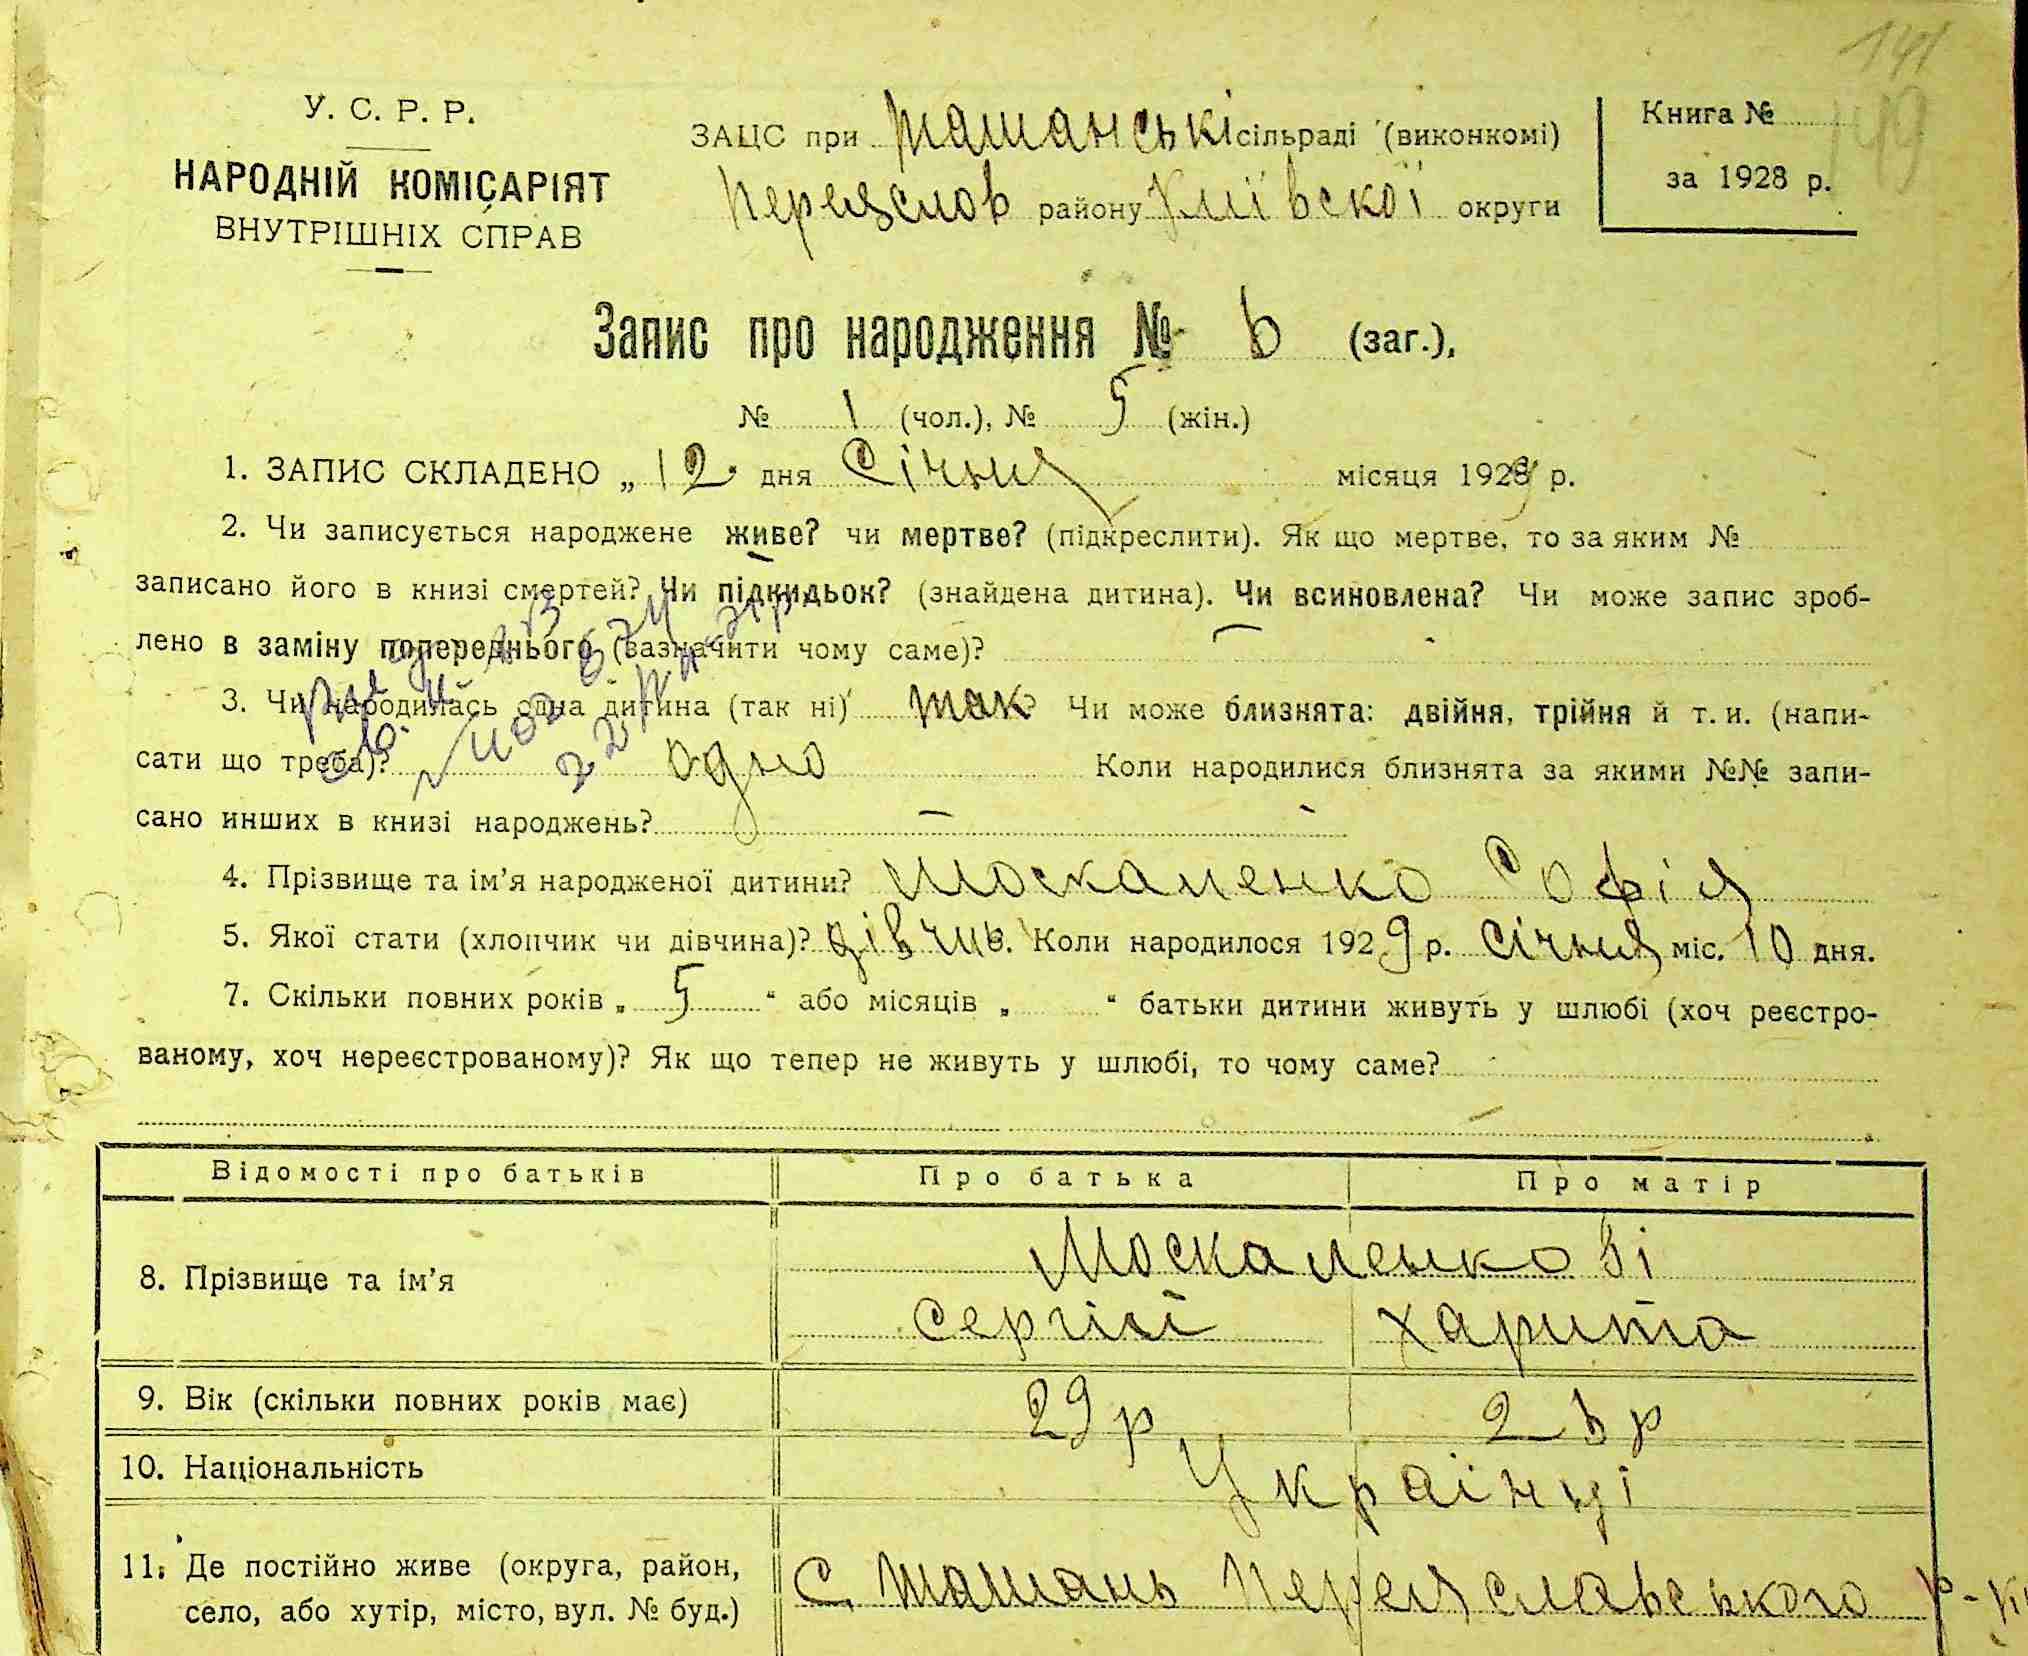 141
149
У. С. Р. Р.
НАРОДНІЙ КОМІСАРІЯТ
ВНУТРІШНІХ СПРАВ
ЗАЦС при Ташанські сільраді (виконкомі)
Переяслов району Київскої округи
Книга №
за 1928 р.
Запис про народження № 6 (заг.),
№ 1 (чол.), № 5 (жін.)
1. ЗАПИС СКЛАДЕНО „ 12 дня Січня місяця 1929 р.
2. Чи записується народжене живе? чи мертве? (підкреслити). Як що мертве, то за яким №
записано його в книзі смертей? Чи підкидьок? (знайдена дитина). Чи всиновлена? Чи може запис зроб-
лено в заміну попереднього (зазначити чому саме)?
3. Чи народилась одна дитина (так ні) так? Чи може близнята: двійня, трійня й т. и. (напи-
сати що треба)? одно Коли народилися близнята за якими №№ запи-
сано инших в книзі народжень?
4. Прізвище та ім’я народженої дитини? Москаленко Софія
5. Якої стати (хлопчик чи дівчина)? дівчин. Коли народилося 1929 р. Січня міс. 10 дня.
7. Скільки повних років „ 5 “ або місяців „ “ батьки дитини живуть у шлюбі (хоч реєстро-
ваному, хоч нереєстрованому)? Як що тепер не живуть у шлюбі, то чому саме?
Відомості про батьків Про батька Про матір
Москаленкові
8. Прізвище та ім’я
Сергій Харита
9. Вік (скільки повних років має) 29 р 26 р
10. Національність Українці
11. Де постійно живе (округа, район,
село, або хутір, місто, вул. № буд.)
С. Ташань Переяславського р-ну